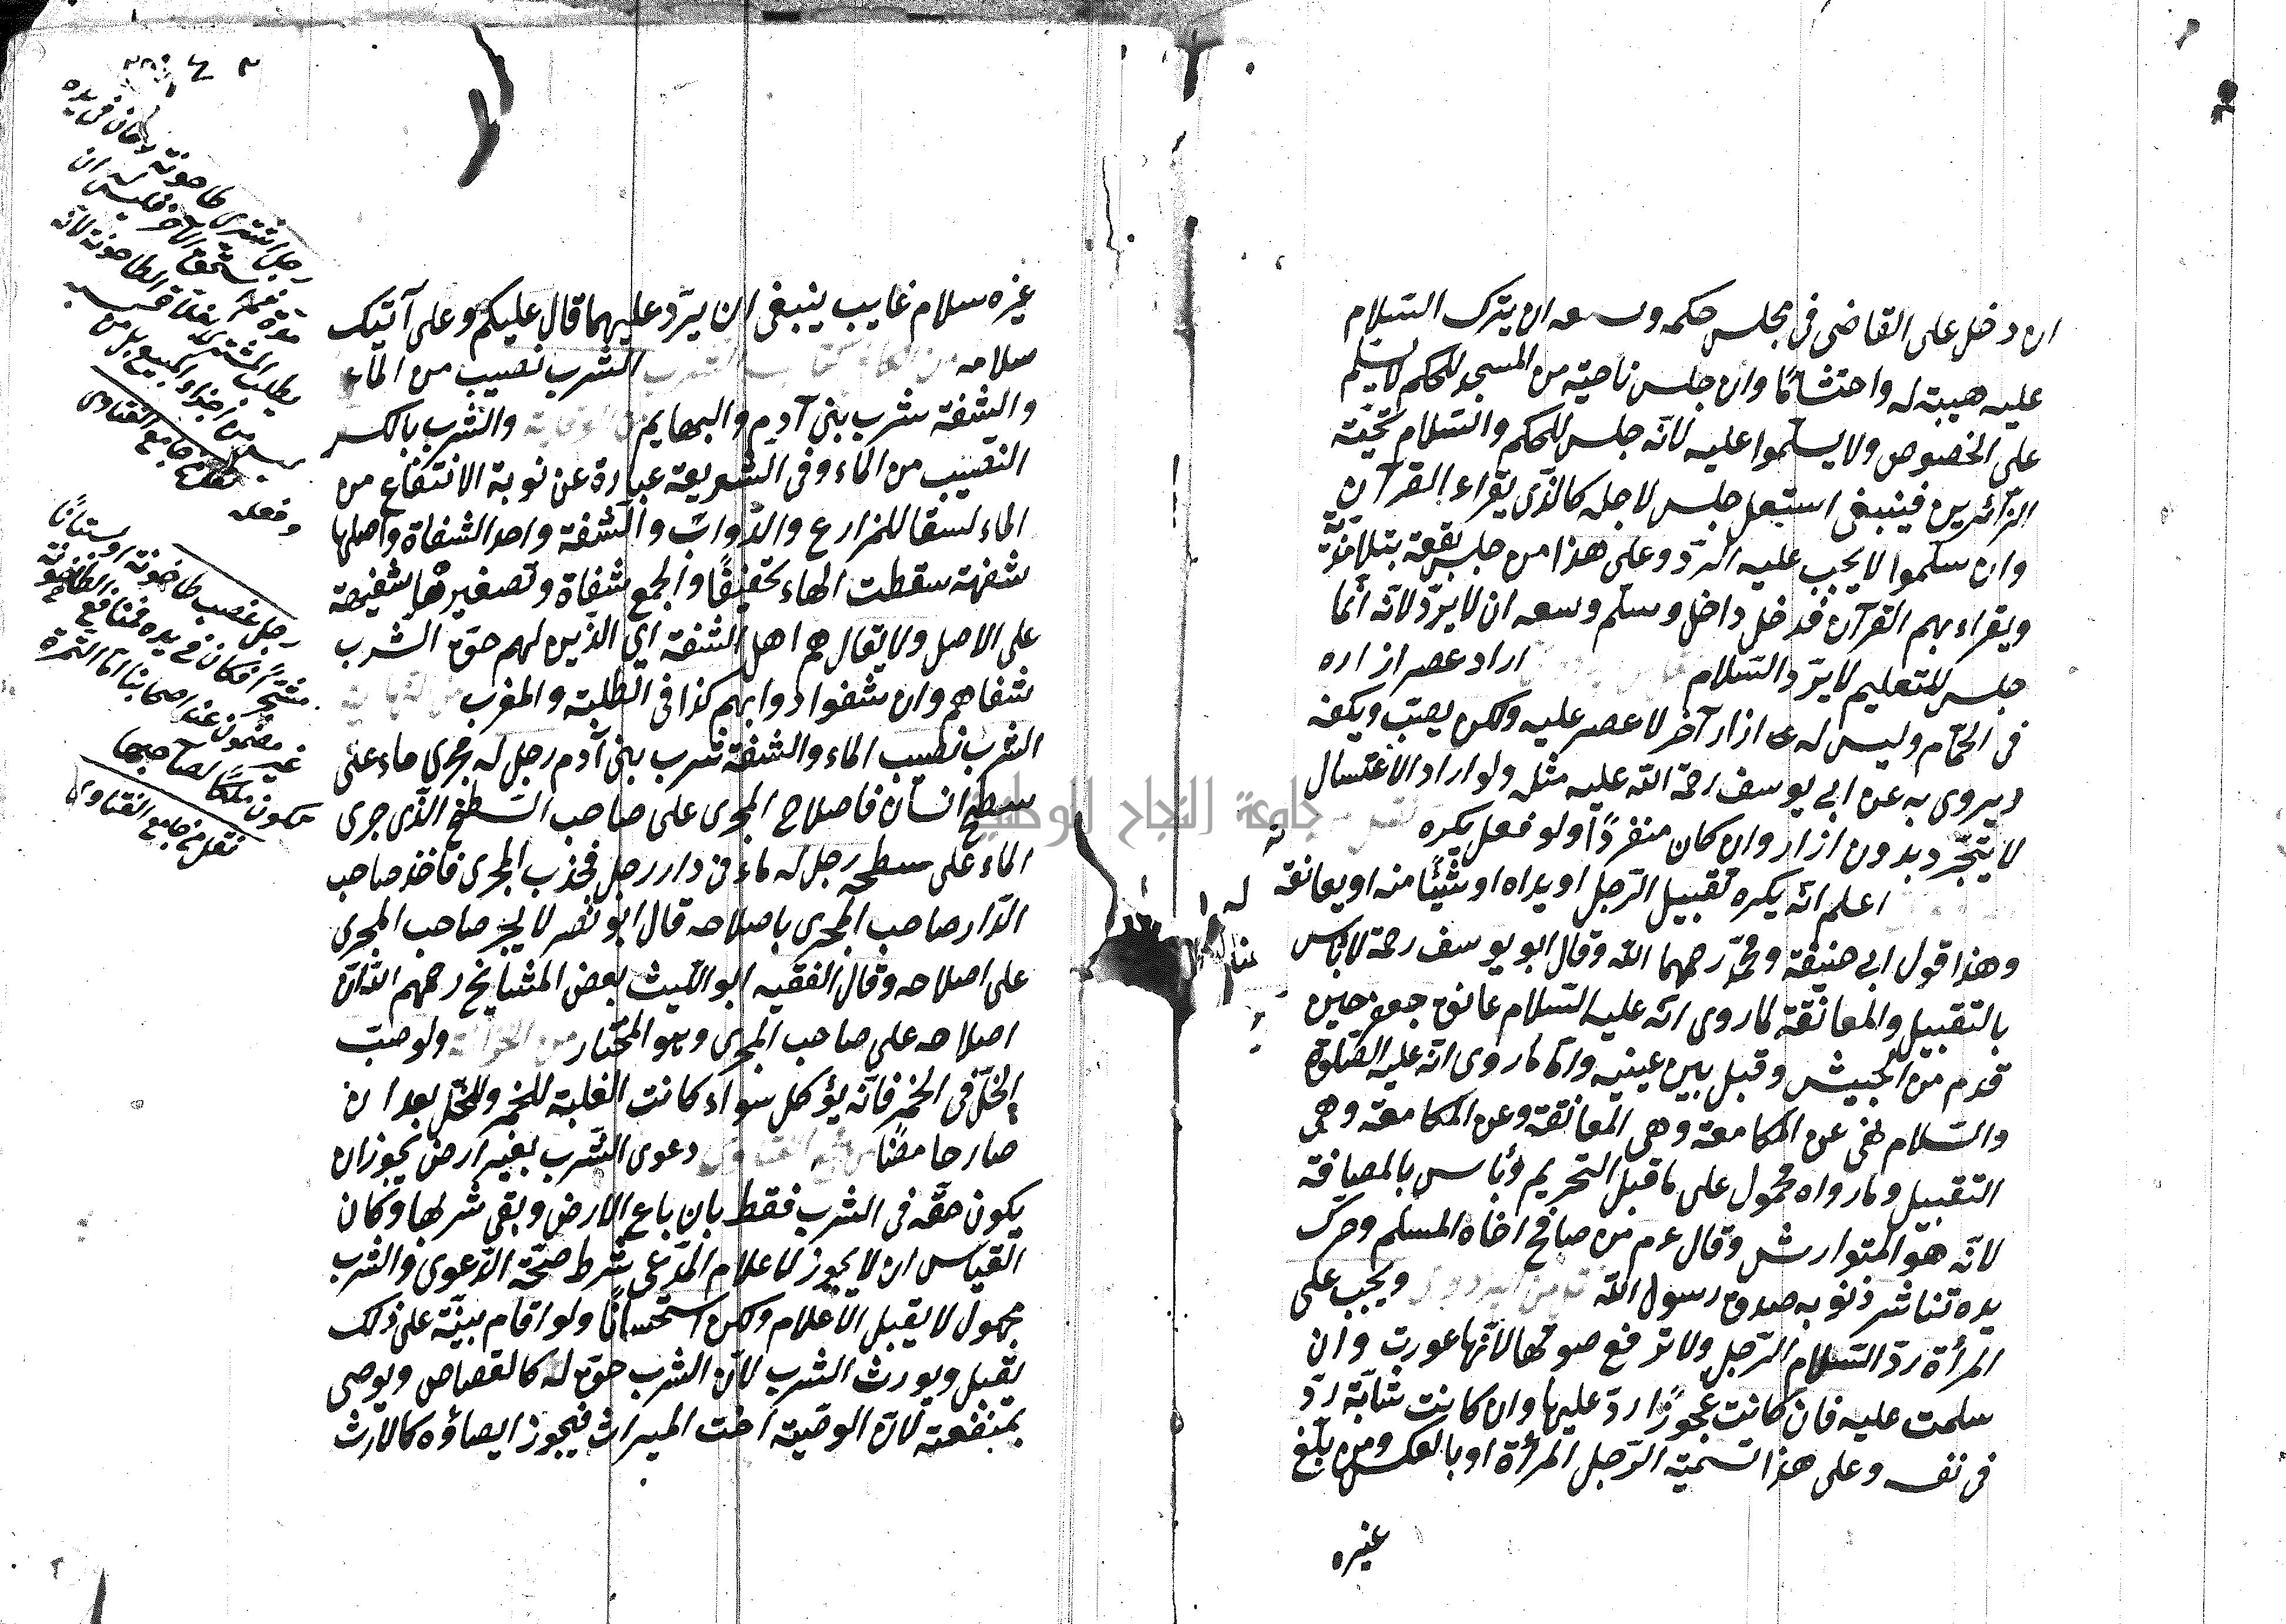 ان دخل على القاضى فى مجلس حكمه وسعه ان يترك السّلام
عليه هيبته له واحتشامًا وان جلس ناحيته من المسجد للحكم لا يسلم
على الخصوص ولا يسلّموا عليه لانّه جلس للحكم والسّلام تحيّة
الزّائرين فينبغى اشتغل جلس لاجله كالذّى يقراء القرآن
وان سلّموا لا يجب عليه الردّ وعلى هذا من جلس يقعة بتلامذته
ويقراء بهم القرآن فدخل داخل وسلّم وسعه ان لا يردّ لانّه أنّما
جلس للتعليم لا يردّ السّلام اراد عصر ازاره
فى الحمّام وليس له ازار آخر لا عصر عليه ولكن يصبّ ويكفه
ويروى به عن ابى يوسف رحمة اللّه عليه مثله ولو اراد الاغتسال
لا يتجرّد بدون ازار وان كان منفردًا ولو فعل يكره
اعلم انّه يكره تقبيل الرّجل او يداه او شيئًا منه او يعانقه
وهذا قول ابى حنيفة ومحمّد رحمهما اللّه وقال ابو يوسف رحمة لا بأس
بالتقبيل والمعانقة لما روى انّه عليه السّلام عانق جعفر حين
قدم من الحبيش وقبل بين عينيه وانّ ما روى انّه عليه الصّلوة
والسّلام نهى عن المكامعة وهى المعانقة وعن المكامعة وهى
التقبيل وما رواه محمول على ما قبل التحريم ولا بأس بالمصافة
لانّه هو المتوارث وقال عم من صافح اخاه المسلم وحرك
يده تناثر ذنوبه صدق رسول اللّه ويجب على
المرأة ردّ السّلام الرّجل ولا ترفع صوتها لانّها عورت وان
سلمت عليه فان كانت عجوزًا ردّ عليها وان كانت شابّة ردّ
فى نفسه وعلى هذا تسمية الرّجل المرأة او بالعكس ومن بلّغ
غيره
غيره سلام غايب ينبغى ان يردّ عليهما قال عليكم وعلى آتيك
سلامه الشرب نصيب من الماء
والشفة شرب بنى آدم والبهايم والشرب بالكسر
النّصيب من الماء وفى الشّريعة عبارة عن نوبة الانتفاع من
الماء لسقا للمزارع والدّوابّ والشّفة واحد الشفاة واصلها
شفهته سقطت الهاء تخفيفًا والجمع شفاة وتصغيرها شفيهة
على الاصل ولا يقال هم اهل الشفة اى الذّين لهم حقّ الشرب
شفاهم وان شفوا دوابهم كذا فى الطلبة والمغرب
الشرب نصيب الماء والشفة شرب بنى آدم رجل له مجرى ماء على
سطح انسان فاصلاح المجرى على صاحب السّطح الذّى جرى
الماء على سطحه رجل له ماء فى دار رجل فخذب المجرى فاخذ صاحب
الدّار صاحب المجرى باصلاحه قال ابو نصر لا يجبر صاحب المجرى
على اصلاحه وقال الفقيه ابو اللّيث بعض المشايخ رحمهم اللّه انّ
اصلاحه على صاحب المجرى وهو المختار من الخزانة ولو صبّ
الخلّ فى الخمر فانّه يؤكل سواء كانت الغلبة للخمر وللخلّ بعد ان
صار حامضًا دعوى الشّرب بغير ارض يجوز ان
يكون حقّه فى الشرب فقط بان باع الارض وبقى شربها وكان
القياس ان لا يجوز لما علام المدّعى شرط صحّة الدّعوى والشرب
مجهول لا يقبل الاعلام ولكن استحسانًا ولو اقام بيّنة على ذلك
يقبل ويورث الشرب لانّ الشرب حقّ له كالقصاص ويوصى
بمنفعته لانّ الوصيّة اخت الميراث فيجوز ايصاؤه كالارث
رجل اشترى طاحونة وكان فى يده
مدّة ثمّ استحقّ الآخر فليس له ان
يطلب المشترى بغلّة الطاحونة لانّه
ليس من اجزاء المبيع بل من
وفعله نقل من جامع الفتاوى
رجل غصب طاحونة او بستانًا
فكان فى يده فمنافع الطاحونة
غير مضمون عند اصحابنا امّا الثمرة
تكون ملكًا لصاحبها
نقل من جامع الفتاوى
جامعة النجاح الوطنية